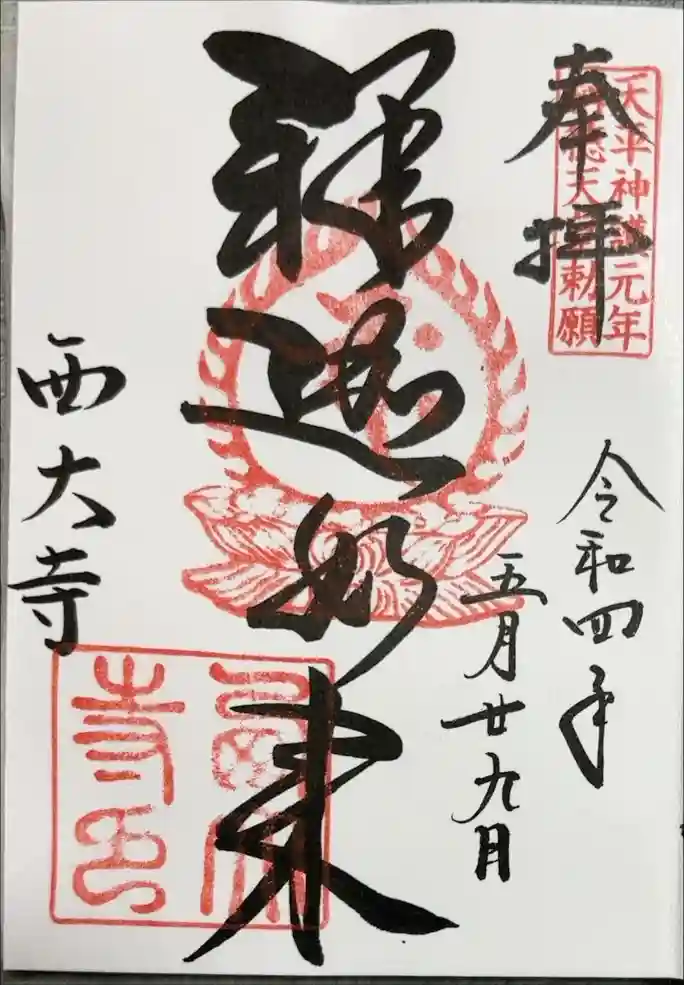 奉拝
天平神護元年
称徳天皇勅願
令和四年
五月廿九日
釋迦如来
西大寺
西大寺印